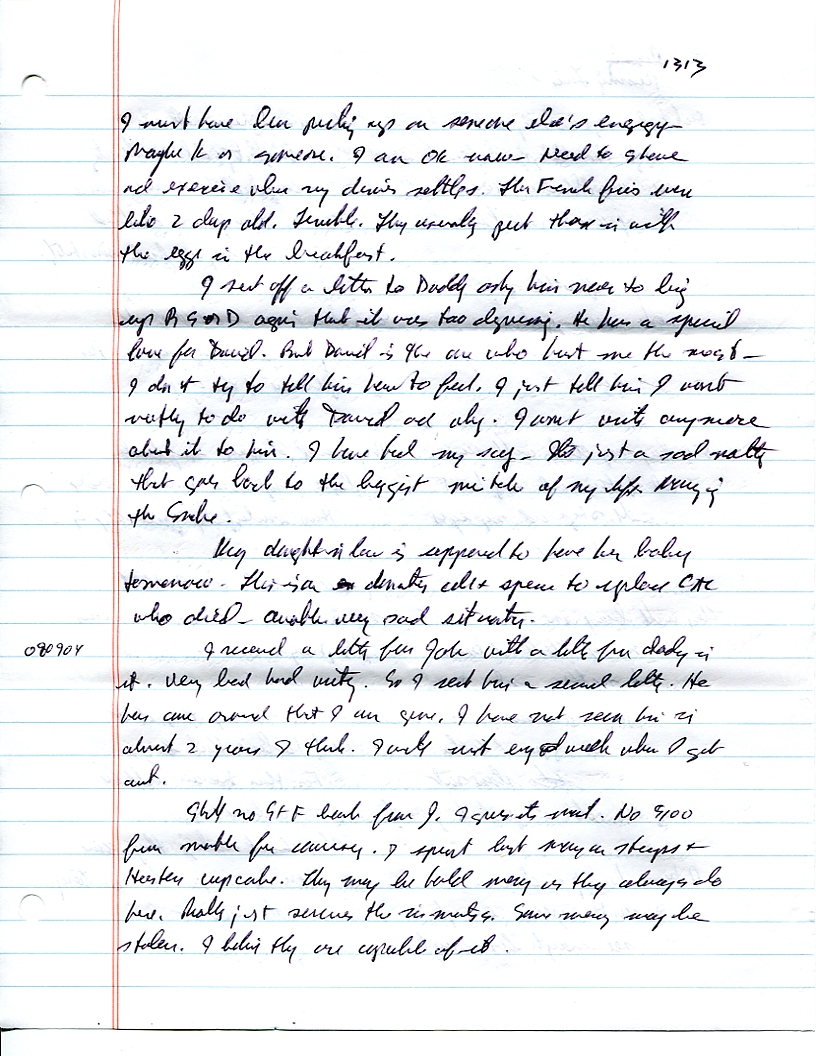 1313
I must have been picking up on someone else's energy-
Maybe K or someone. I am OK now- Need to shave
and exercise when my dinner settles. The French fries were
like 2 days old. Terrible. They usually put them in with
the eggs in the breakfast.
I sent off a letter to Daddy asking him never to bring
up again that it was too depressing. He has a special
love for David. But David is the one who hurt me the most-
I don't try to tell him how to feel. I just tell him I want
nothing to do with David and. I wont write anymore
about it to him. I have had my say- just a sad matter
that goes back to the biggest mistake of my life
the
My daughter in law is supposed to have her baby
tomorrow- This is a egg & sperm to replace
who died- another very sad situation.
080904
I received a letter from with a letter from daddy in
it. Very bad hand writing. So I sent him a second letter. He
has come around that I am gone. I have not seen him in
almost 2 years I think. I will visit when I get
out.
Still no back from J. I guess its next. No $100
from for. I spent last money on stamps &
Hostess cupcake. They may be hold money as they always do
here. Really just screws the inmates. Some money may be
stolen. I believe they are capable of it.